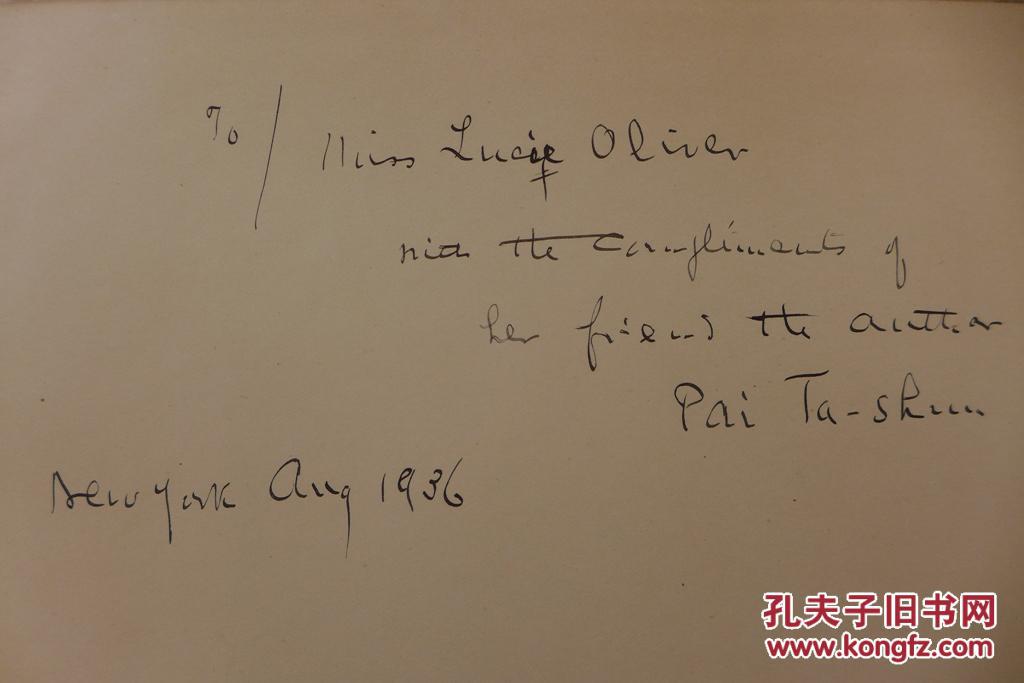 To / Miss Lucie Oliver
with the compliments of
her friend the author
Pai Ta-shun
New York Aug 1936
孔夫子旧书网
www.kongfz.com